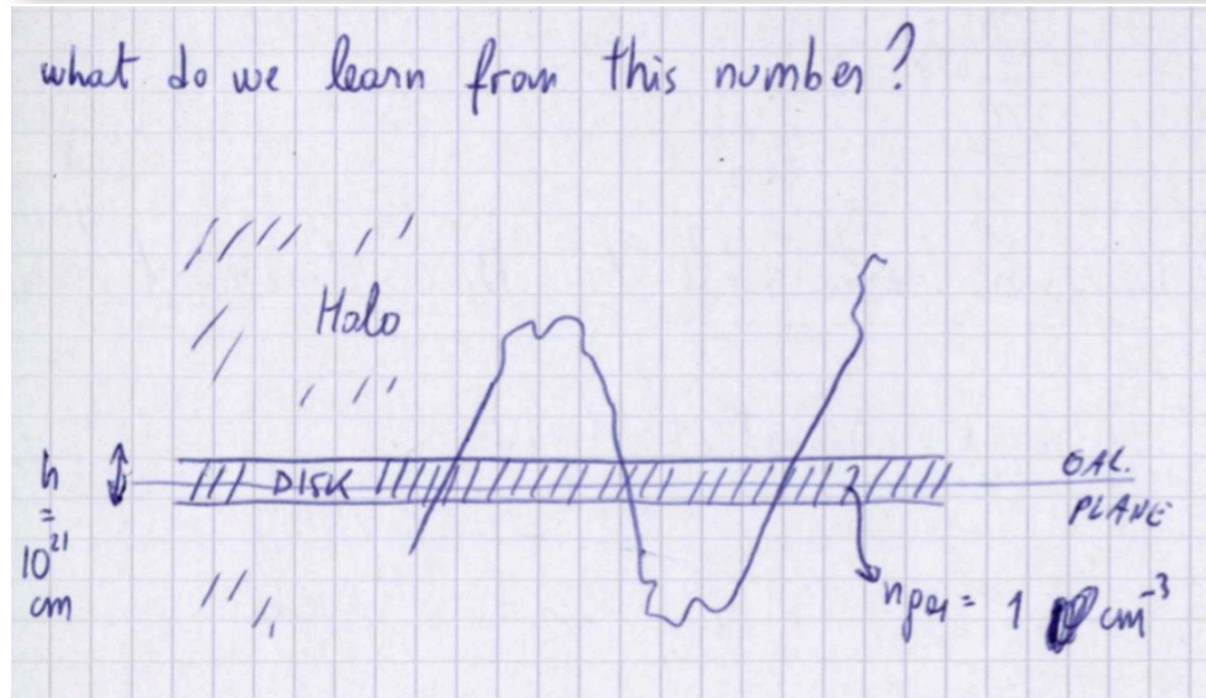 what do we learn from this number?
Halo
h
=
10²¹
cm
DISK
GAL.
PLANE
n_gas = 1 cm⁻³